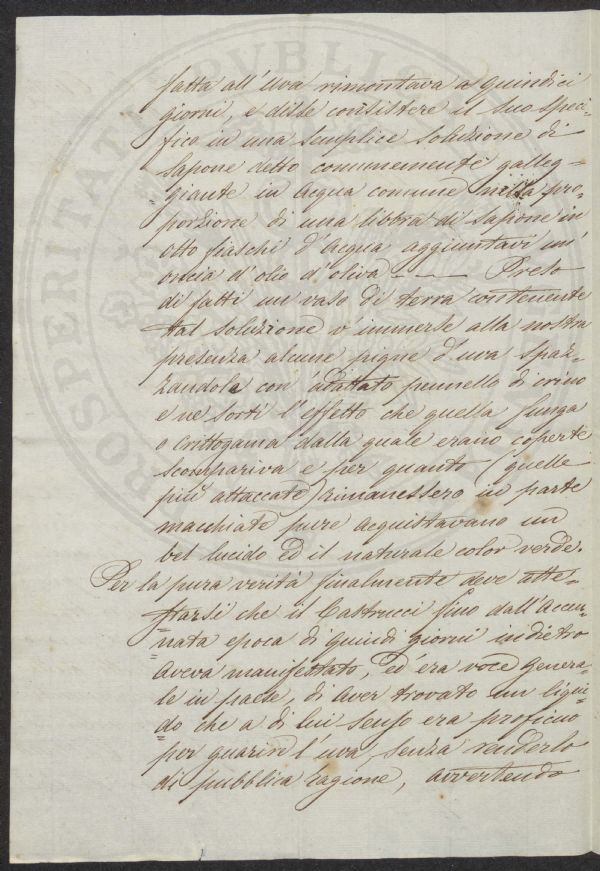 fatta all'uva rimontava a quindici
giorni, e disse consistere il suo speci-
fico in una semplice soluzione di
Sapone detto comunemente galleg-
giante in acqua comune nella pro-
porzione di una libbra di Sapone in
otto fiaschi d'acqua aggiuntavi un'
oncia d'olio d'oliva ——— Preso
di fatti un vaso di terra contenente
tal soluzione v'immerse alla nostra
presenza alcune pigne d'uva spaz-
zandole con adattato pennello di crino
e ne sortì l'effetto che quella funga
o crittogama dalla quale erano coperte
scompariva e per quanto (quelle
più attaccate) rimanessero in parte
macchiate pure acquistavano un
bel lucido ed il naturale color verde.
Per la pura verità finalmente deve atte-
starsi che il Castrucci fino dall'accen-
nata epoca di quindi giorni indietro
aveva manifestato, ed era voce genera-
le in paese, di aver trovato un liqui-
do che a di lui senso era proficuo
per guarire l'uva, senza renderlo
di pubblica ragione, avvertendo
PROSPERITATI PUBLICAE